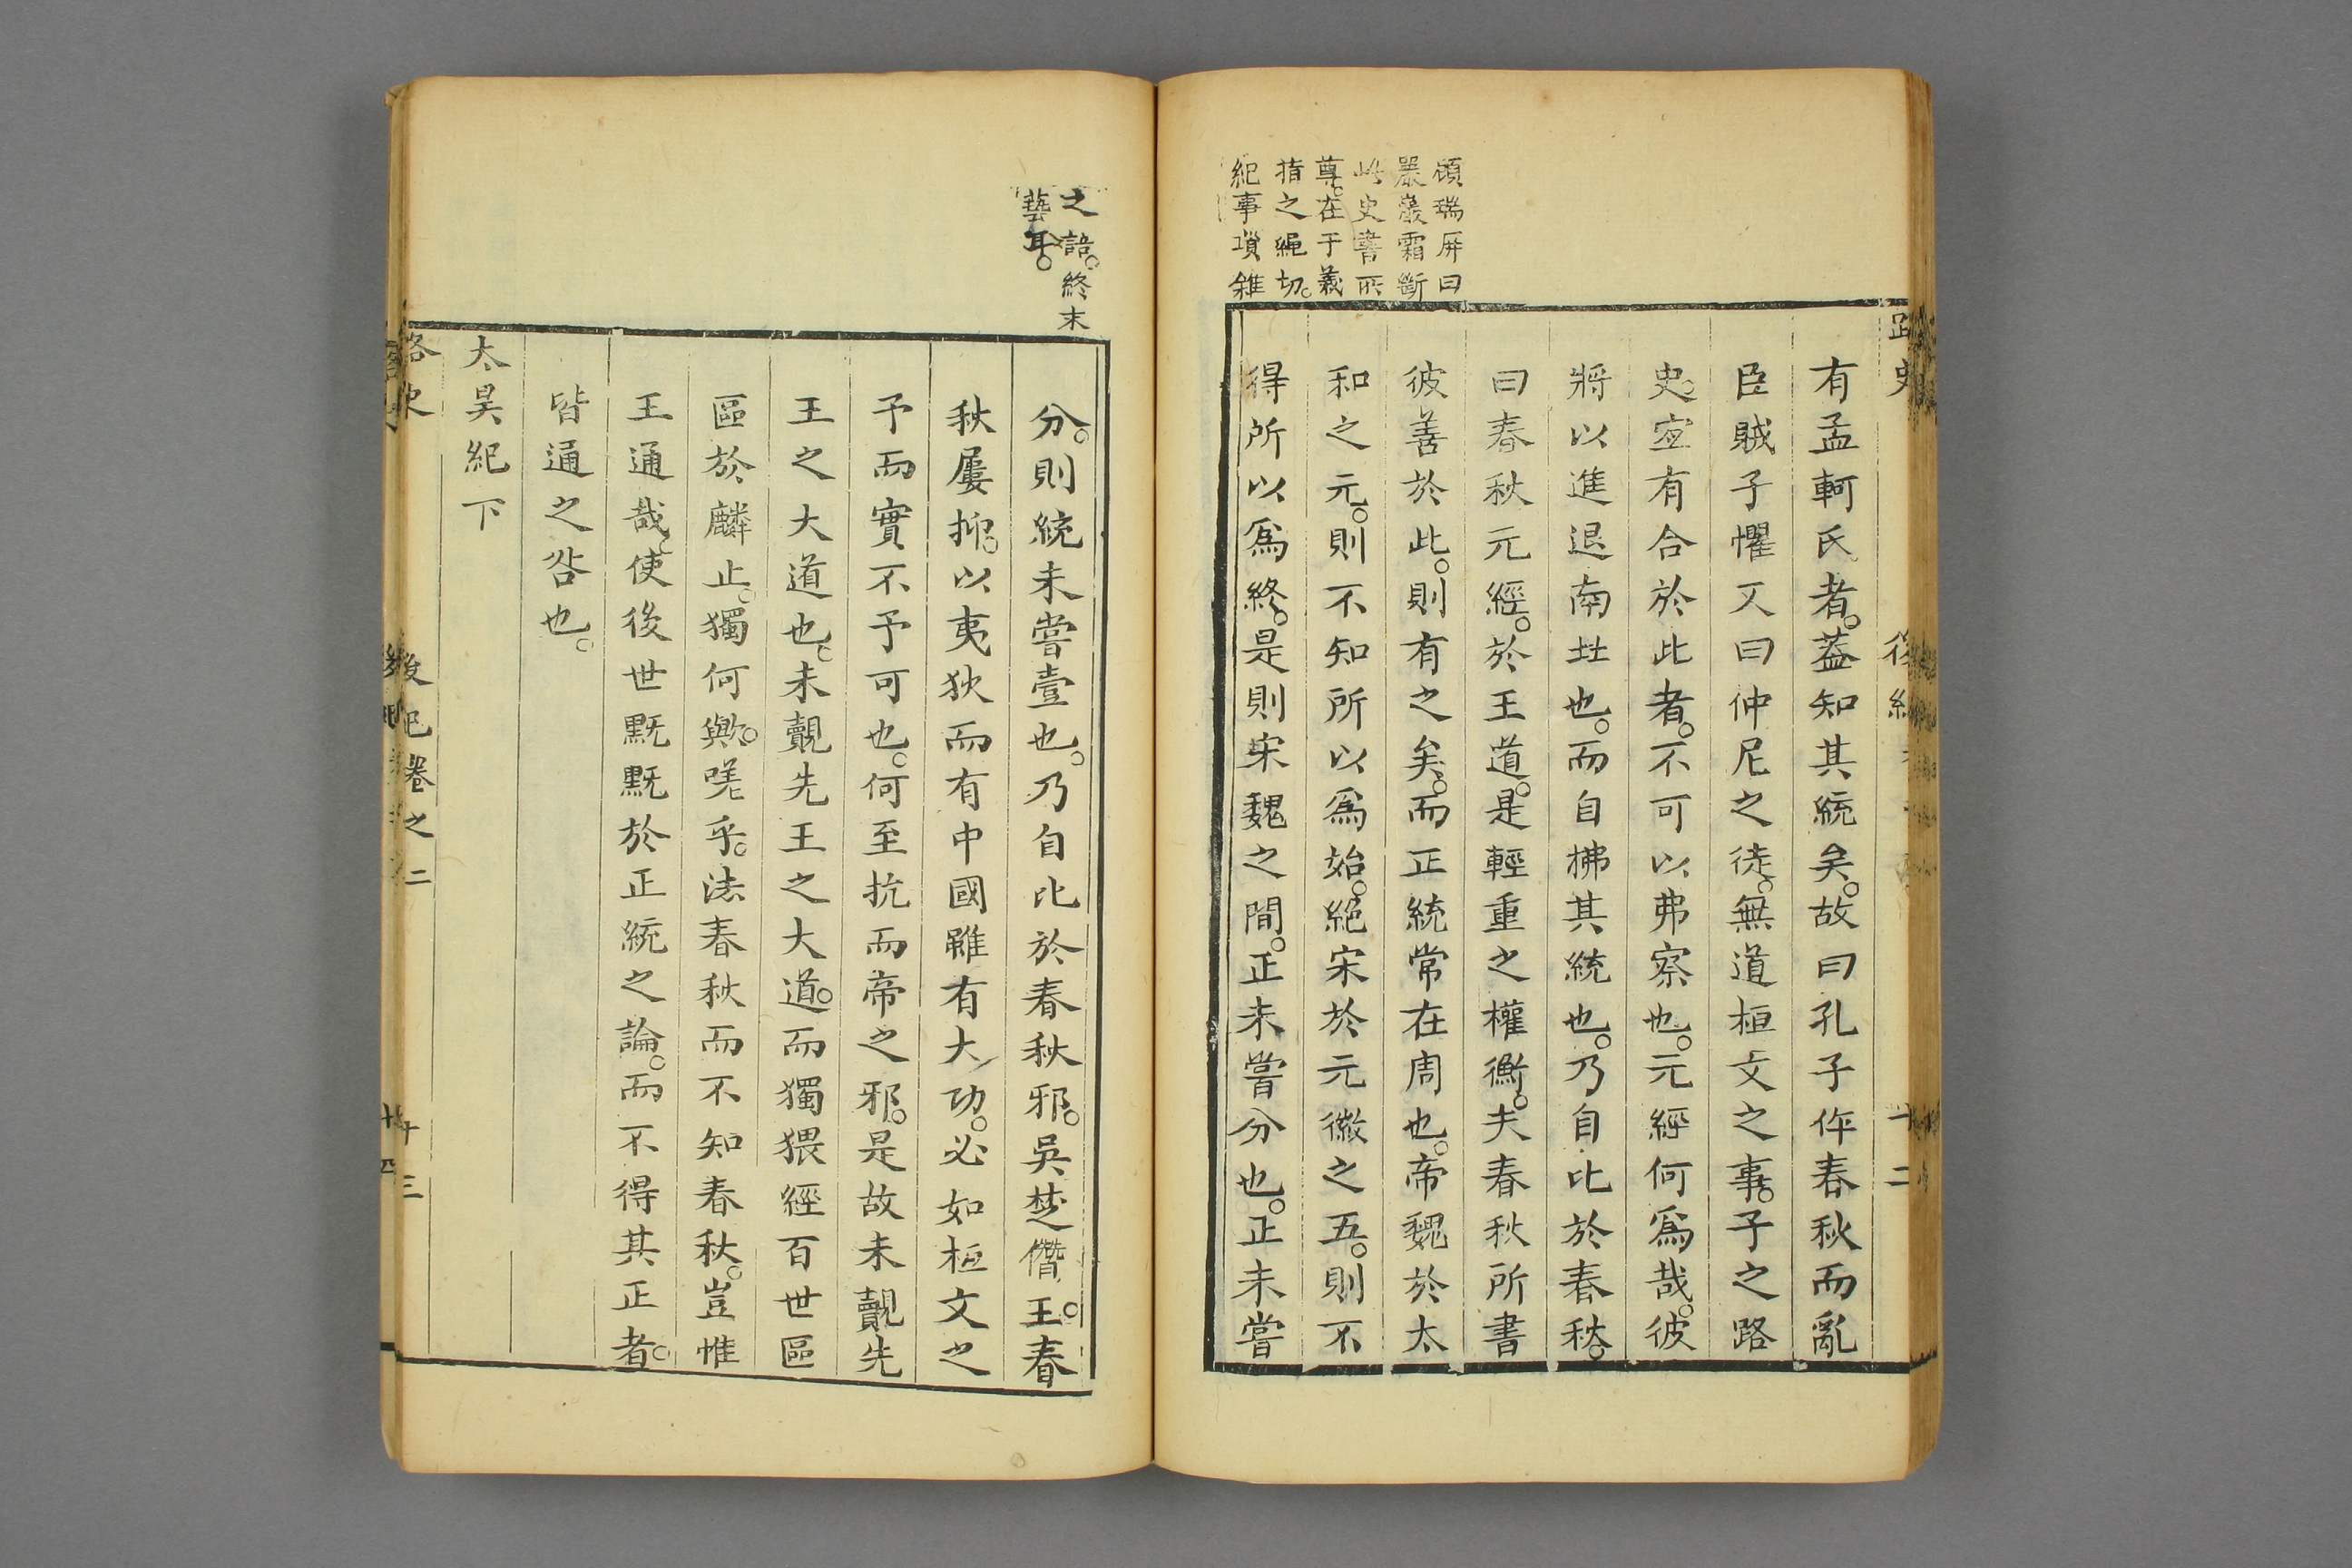 碩瑞屏曰
嚴嚴霜斷
此史書所
尊在于義
指之繩切
紀事瑣雜
有孟軻氏者。葢知其統矣。故曰孔子作春秋而亂
臣賊子懼又曰仲尼之徒。無道桓文之事。子之路
史。宐有合於此者。不可以弗察也。元經何爲哉。彼
將以進退南北也。而自拂其統也。乃自比於春秋。
曰春秋元經。於王道。是輕重之權衡。夫春秋所書
彼善於此。則有之矣。而正統常在周也。帝魏於太
和之元。則不知所以爲始。絕宋於元徽之五。則不
得所以爲終。是則宋魏之間。正未嘗分也。正未嘗
十二
之語。終末
藝耳。
分。則統未嘗壹也。乃自比於春秋邪。吳楚僭王。春
秋屢抑。以夷狄而有中國雖有大功。必如桓文之
予而實不予可也。何至抗而帝之邪。是故未覿先
王之大道也。未覿先王之大道。而獨猥經百世區
區於麟止。獨何歟。嗟乎。法春秋而不知春秋。豈惟
王通哉。使後世黖黖於正統之論。而不得其正者。
皆通之咎也。
太昊紀下
路史
後紀卷之二
十三